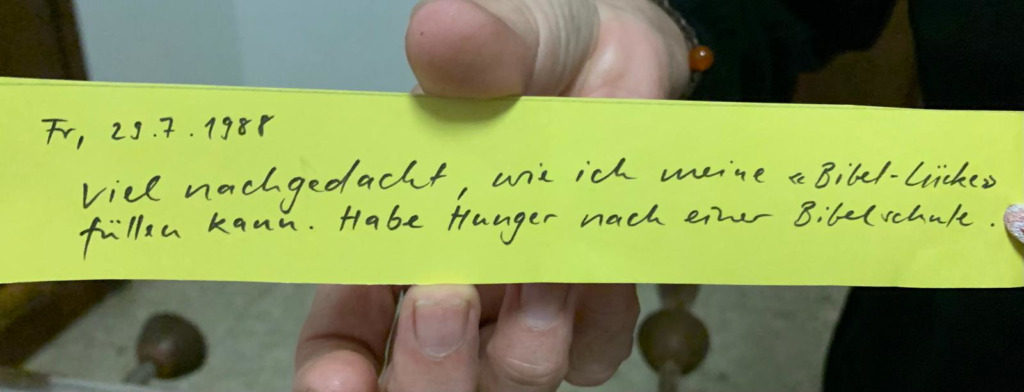 Fr, 29.7.1988
Viel nachgedacht, wie ich meine «Bibel-Lücke»
füllen kann. Habe Hunger nach einer Bibelschule.